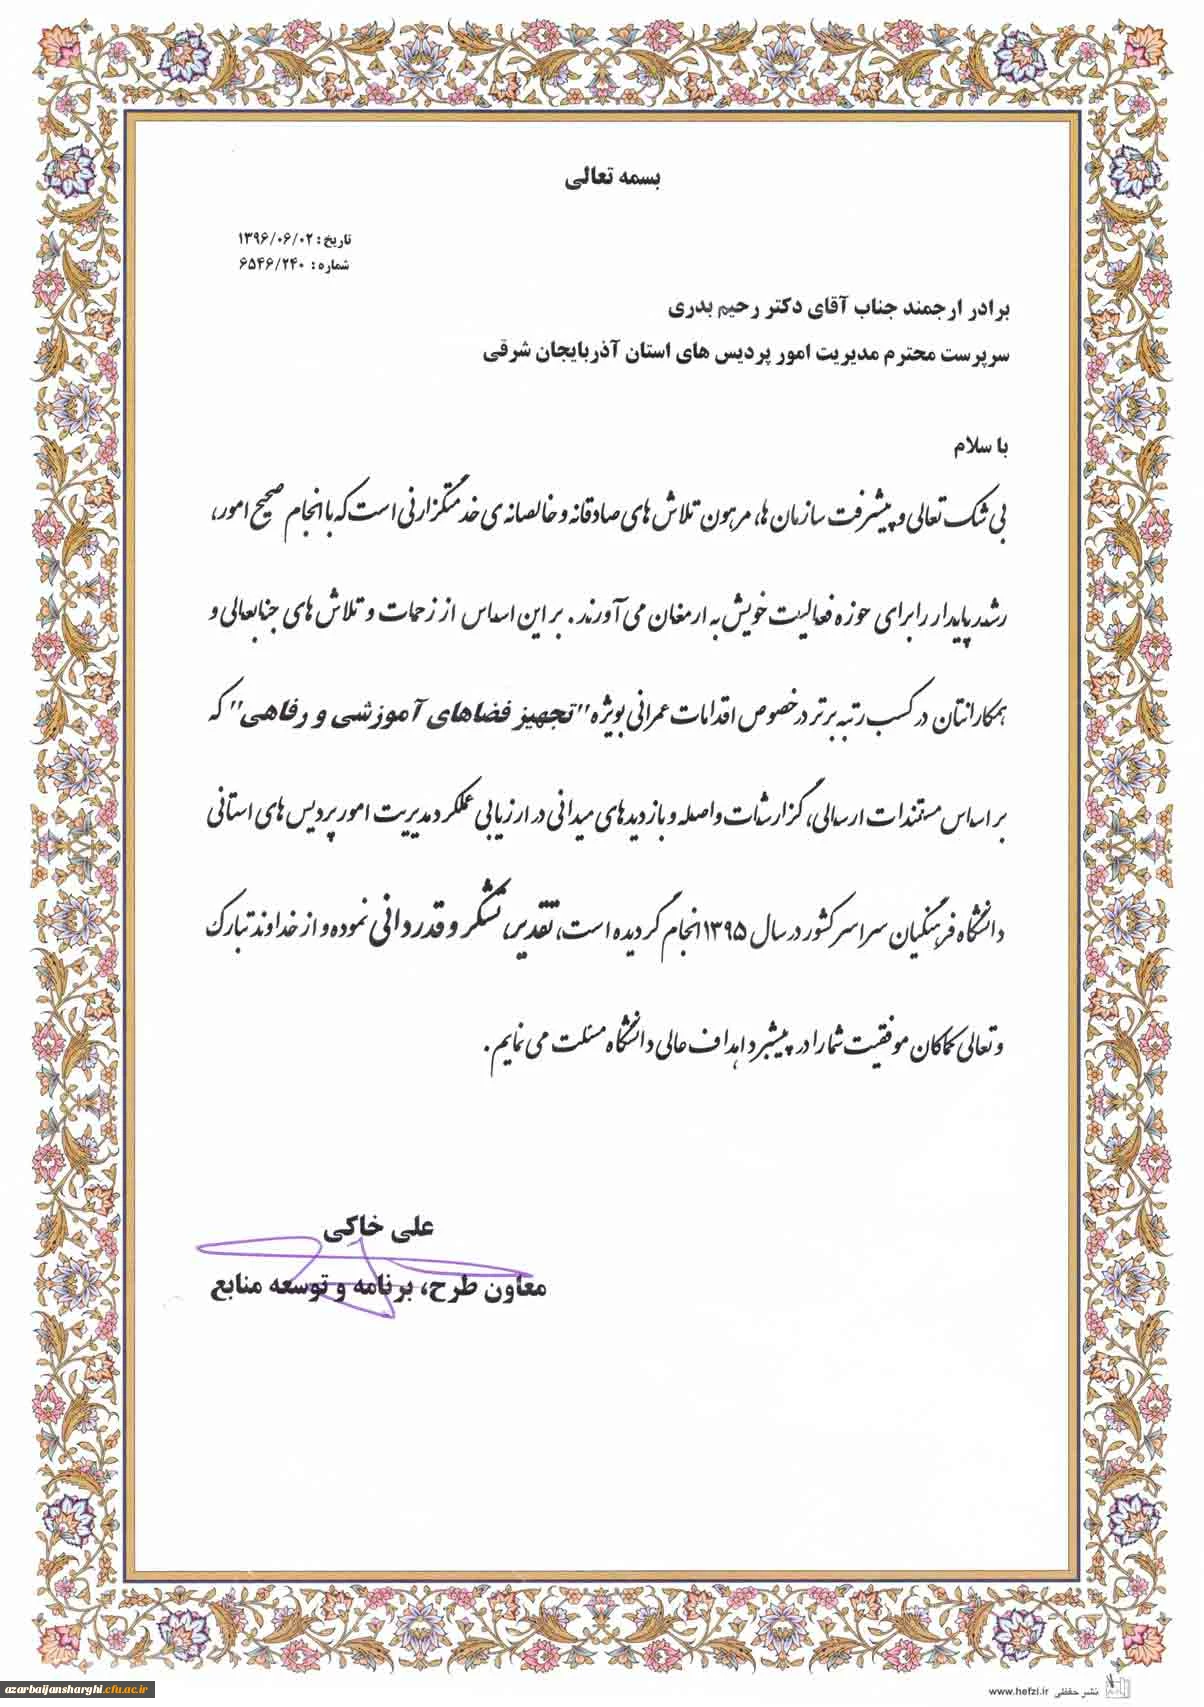 بسمه تعالی
تاریخ: ۱۳۹۶/۰۶/۰۲
شماره: ۶۵۴۶/۲۴۰
برادر ارجمند جناب آقای دکتر رحیم بدری
سرپرست محترم مدیریت امور پردیس های استان آذربایجان شرقی
با سلام
بی شک تعالی و پیشرفت سازمان ها، مرهون تلاش های صادقانه و خالصانه ی خدمتگزارانی است که با انجام صحیح امور،
رشد پایدار را برای حوزه فعالیت خویش به ارمغان می آورند. بر این اساس از زحمات و تلاش های جنابعالی و
همکارانتان در کسب رتبه برتر در خصوص اقدامات عمرانی بویژه "تجهیز فضاهای آموزشی و رفاهی" که
بر اساس مستندات ارسالی، گزارشات واصله و بازدیدهای میدانی در ارزیابی عملکرد مدیریت امور پردیس های استانی
دانشگاه فرهنگیان سراسر کشور در سال ۱۳۹۵ انجام گردیده است، تقدیر، تشکر و قدردانی نموده و از خداوند تبارک
و تعالی کماکان موفقیت شما را در پیشبرد اهداف عالی دانشگاه مسئلت می نمایم.
علی خاکی
معاون طرح، برنامه و توسعه منابع
نشر حفظی www.hefzi.ir
azarbaijansharghi.cfu.ac.ir